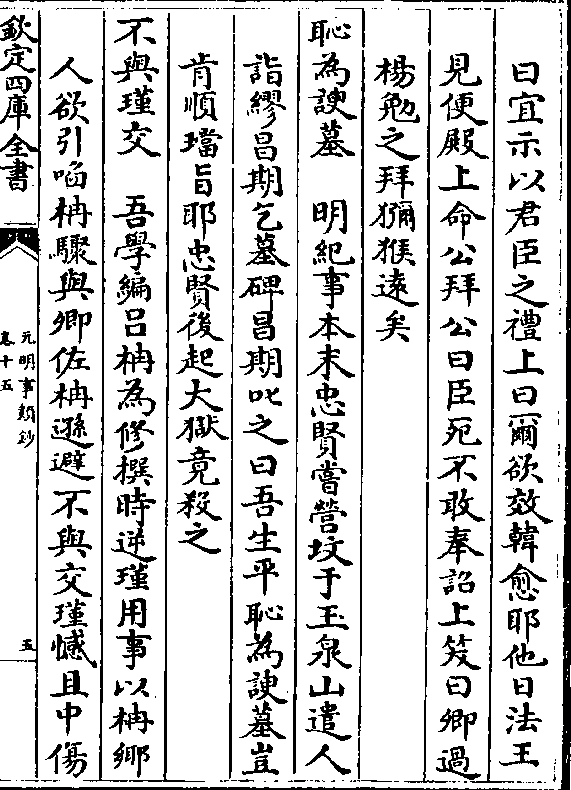 曰宜示以君臣之禮上曰爾欲效韓愈耶他日法王
見便殿上命公拜公曰臣死不敢奉詔上笑曰卿過
楊勉之拜獼猴遠矣
恥為諛墓　明紀事本末忠賢嘗營墳于玉泉山遣人
詣繆昌期乞墓碑昌期叱之曰吾生平恥為諛墓豈
肯順璫旨耶忠賢後起大獄竟殺之
不與瑾交　吾學編吕柟為修撰時逆瑾用事以柟鄉
人欲引㗖柟驟與卿佐柟遜避不與交瑾憾且中傷
欽定四庫全書
元明事類鈔
卷十五
五